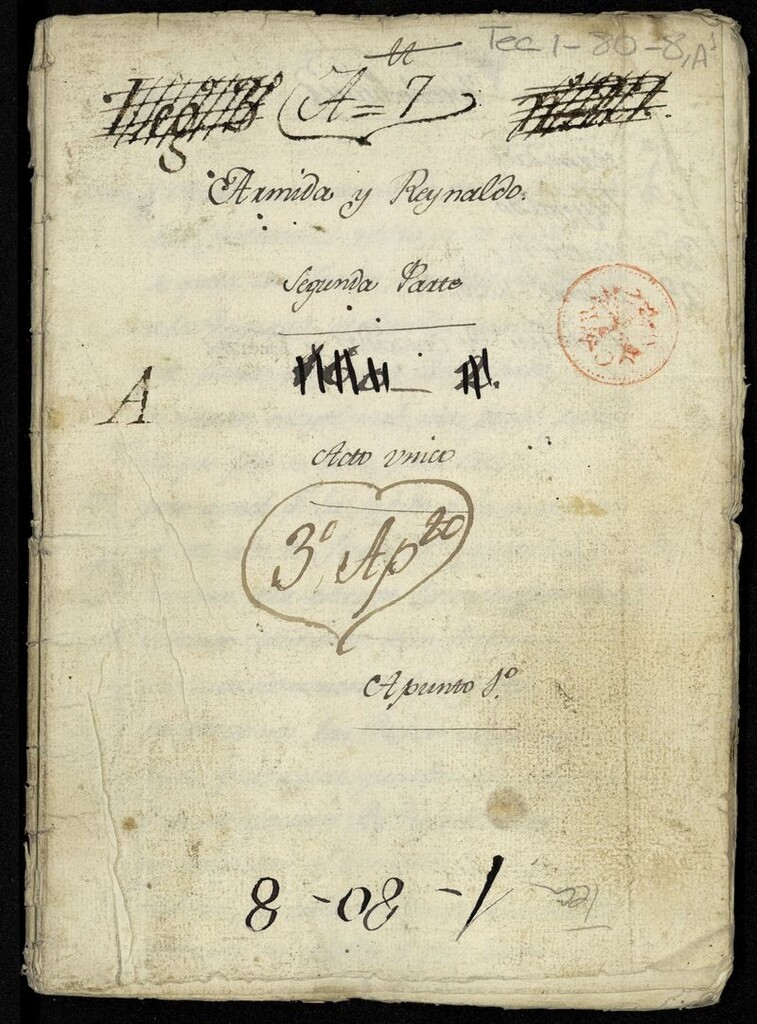 Tea 1-80-8, A
Leg.º 3º A=7
Armida y Reynaldo.
Segunda Parte
A
Acto vnico
3º, Ap 20
Apunto 1.º
1-80-8
Tea